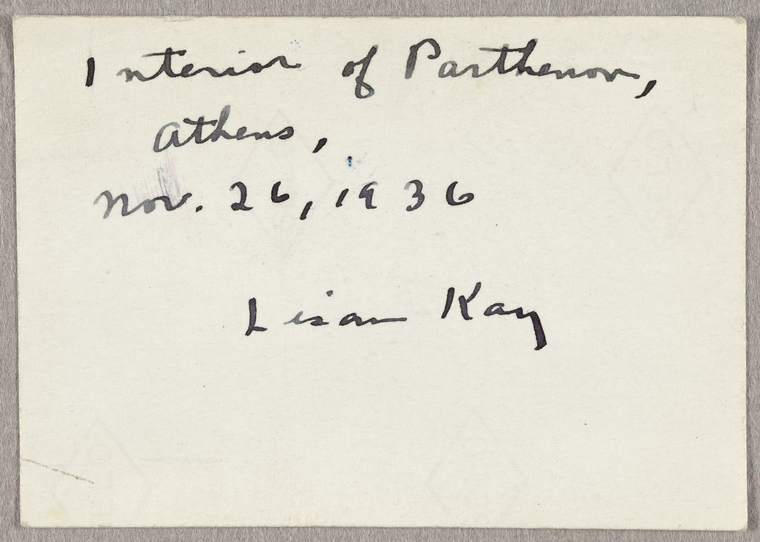 Interior of Parthenon,
Athens,
Nov. 26, 1936
Lisan Kay